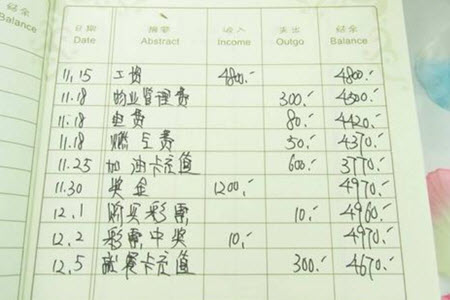 结余
Balance
日期 摘要 收入 支出 结余
Date Abstract Income Outgo Balance
11.15 工资 4800.- 4800.-
11.18 物业管理费 300.- 4500.-
11.18 电费 80.- 4420.-
11.18 燃气费 50.- 4370.-
11.25 加油卡充值 600.- 3770.-
11.30 奖金 1200.- 4970.-
12.1 购买彩票 10.- 4960.-
12.2 彩票中奖 10.- 4970.-
12.5 就餐卡充值 300.- 4670.-